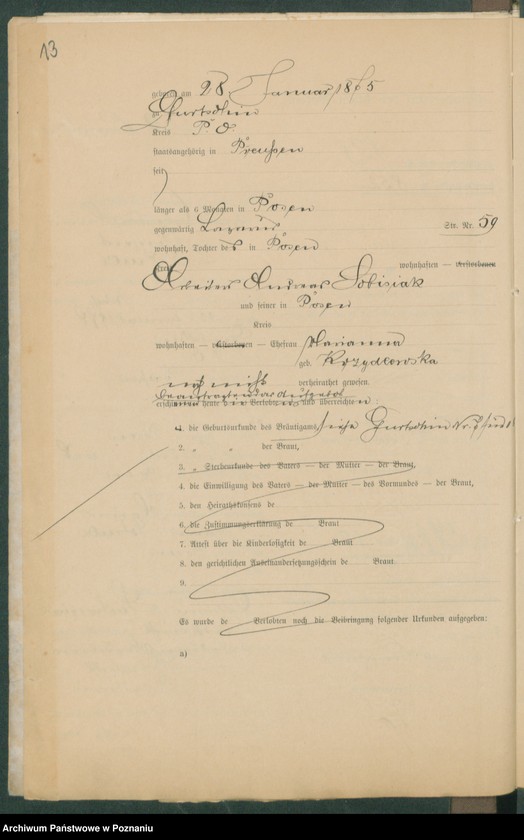 13
geboren am 28. Januar 1865
zu Gurtschin
Kreis P. O.
staatsangehörig in Preußen
seit
länger als 6 Monaten in Posen
gegenwärtig Lazarus Str. Nr. 59
wohnhaft, Tochter des in Posen
Kreis wohnhaften — verstorbenen
Arbeiter Andreas Sobisiak
und seiner in Posen
Kreis
wohnhaften — verstorbenen — Ehefrau Marianna
geb. Krzydlowska
noch nicht verheirathet gewesen.
beantragten das Aufgebot
erschienen heute die Verlobten und überreichten:
1. die Geburtsurkunde des Bräutigams, siehe Gurtschin Nr.
2. " " der Braut,
3. " Sterbeurkunde des Vaters — der Mutter — der Braut,
4. die Einwilligung des Vaters — der Mutter — des Vormundes — der Braut,
5. den Heirathskonsens de
6. die Zustimmungserklärung de Braut
7. Attest über die Kinderlosigkeit de Braut
8. den gerichtlichen Auseinandersetzungsschein de Braut
9.
Es wurde de Verlobten noch die Beibringung folgender Urkunden aufgegeben:
a)
Archiwum Państwowe w Poznaniu